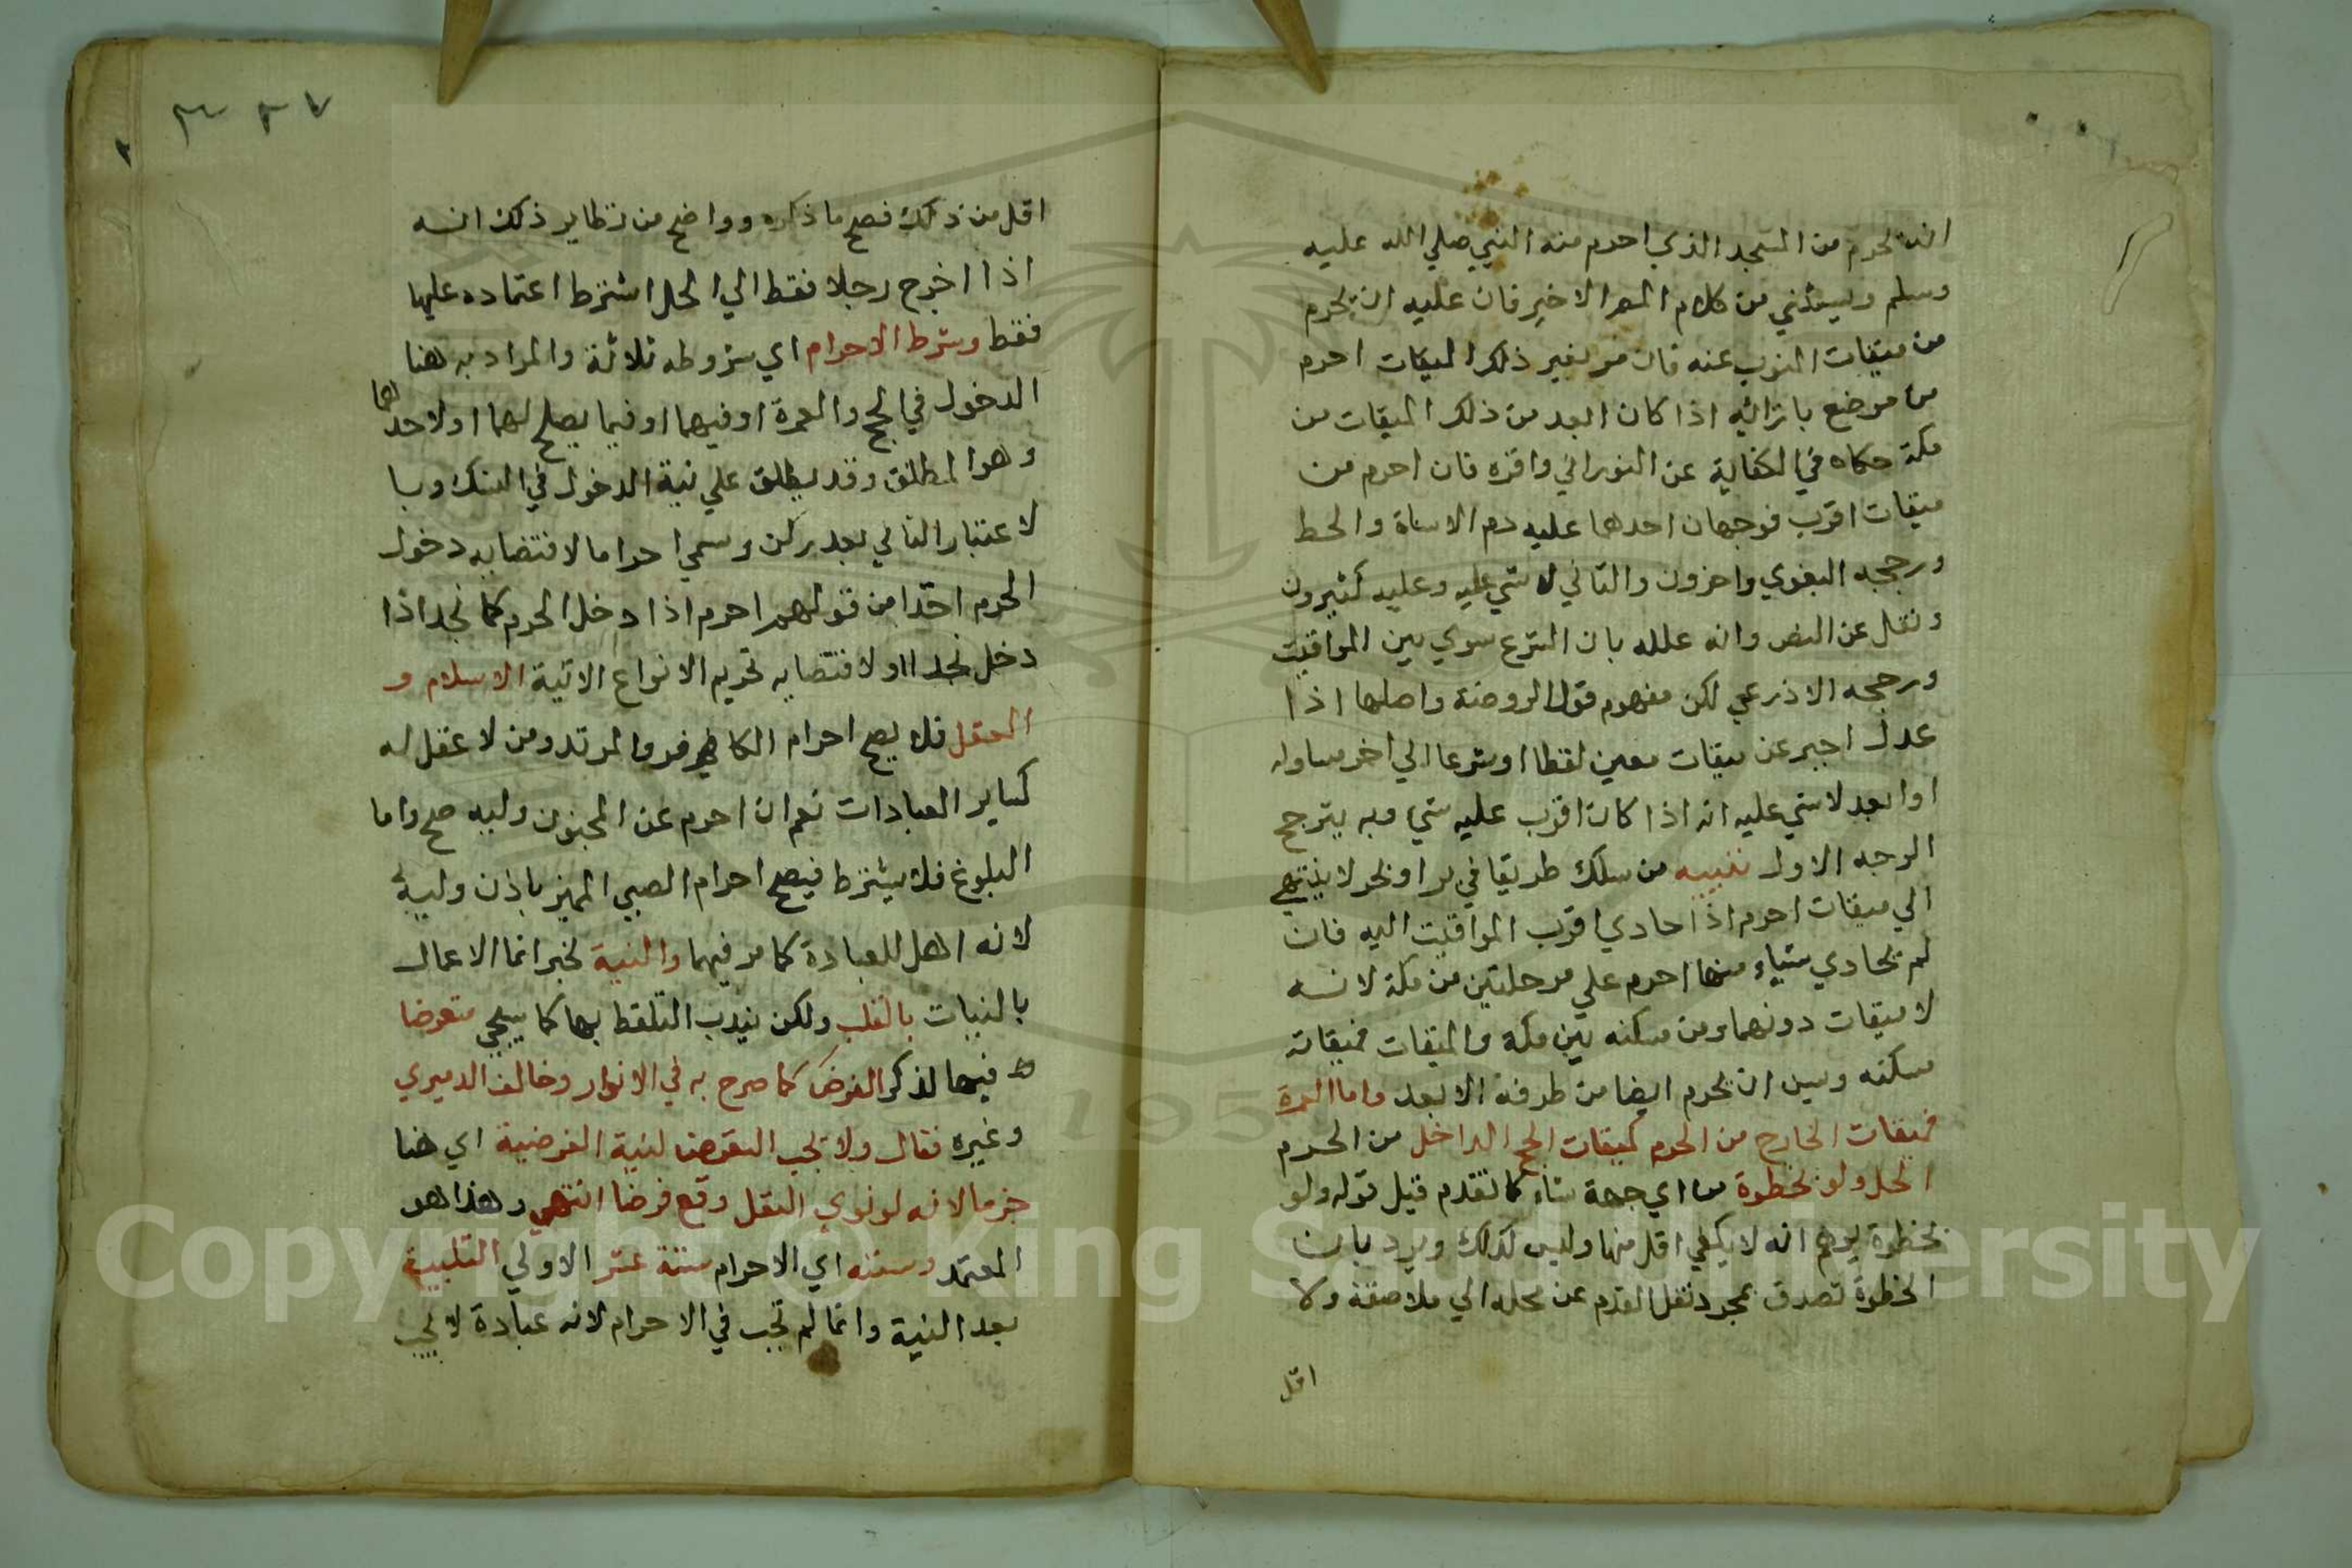 ان يحرم من المسجد الذي احرم منه النبي صلي الله عليه
وسلم ويستثني من كلام المص الاخير فان عليه ان يحرم
من ميقات المنوب عنه فان مر بغير ذلك الميقات احرم
من موضع بازائه اذا كان ابعد من ذلك الميقات من
مكة حكاه في الكفاية عن الفوراني واقره فان احرم من
ميقات اقرب فوجهان احدهما عليه دم الاساة والحط
ورجحه البغوي واخرون والثاني لا شي عليه وعليه كثيرون
ونقل عن النص وانه علله بان الشرع سوي بين المواقيت
ورجحه الاذرعي لكن مفهوم قول الروضة واصلها اذا
عدل اجير عن ميقات معين لفظا او شرعا الي اخر مساوله
او ابعد لا شي عليه انه اذا كان اقرب عليه شي وبه يترجح
الوجه الاول تنبيه من سلك طريقا في بر او بحر لا ينتهي
الي ميقات احرم اذا حاذي اقرب المواقيت اليه فان
لم يحاذي شياء منها احرم علي مرحلتين من مكة لانه
لا ميقات دونهما ومن مسكنه بين مكة والميقات فميقاته
مسكنه ويسن ان يحرم ايضا من طرفه الابعد واما العمرة
فميقات الخارج من الحرم كميقات الحج الداخل من الحرم
الحل ولو بخطوة من اي جهة شاء كما تقدم قبل قوله ولو
بخطوة يوهم انه لا يكفي اقل منها وليس كذلك ويرد بان
الخطوة تصدق بمجرد نقل القدم عن محله الي ملاصقة ولا
اقل
٣ ٢ ٧
اقل من ذلك فصح ما ذكره وواضح من نظاير ذلك انه
اذا اخرج رجلا فقط الي الحل اشترط اعتماده عليها
فقط وشرط الاحرام اي شروطه ثلاثة والمراد به هنا
الدخول في الحج والعمرة او فيهما او فيما يصلح لهما او لاحدهما
وهو المطلق وقد يطلق علي نية الدخول في النسك وبا
لاعتبار الثاني يعد ركن وسمي احراما لاقتضايه دخول
الحرم اخذا من قولهم احرم اذا دخل الحرم كانجد اذا
دخل نجدا او لاقتضايه تحريم الانواع الاتية الاسلام و
العقل فلا يصح احرام الكافر والمرتد ومن لا عقل له
كساير العبادات نعم ان احرم عن المجنون وليه صح واما
البلوغ فلا يشترط فيصح احرام الصبي المميز باذن وليه
لانه اهل للعبادة كما مر فيهما والنية لخبر انما الاعمال
بالنيات بالقلب ولكن يندب التلفظ بها كما سيجي متعرضا
فيها لذكر الفرض كما صرح به في الانوار وخالف الدميري
وغيره فقال ولا يجب التعرض لنية الفرضية اي هنا
جزما لانه لو نوي النفل وقع فرضا انتهي وهذا هو
المعتمد وسننه اي الاحرام ستة عشر الاولي التلبية
بعد النية وانما لم تجب في الاحرام لانه عبادة لا يجب
Copyright © King Saud University